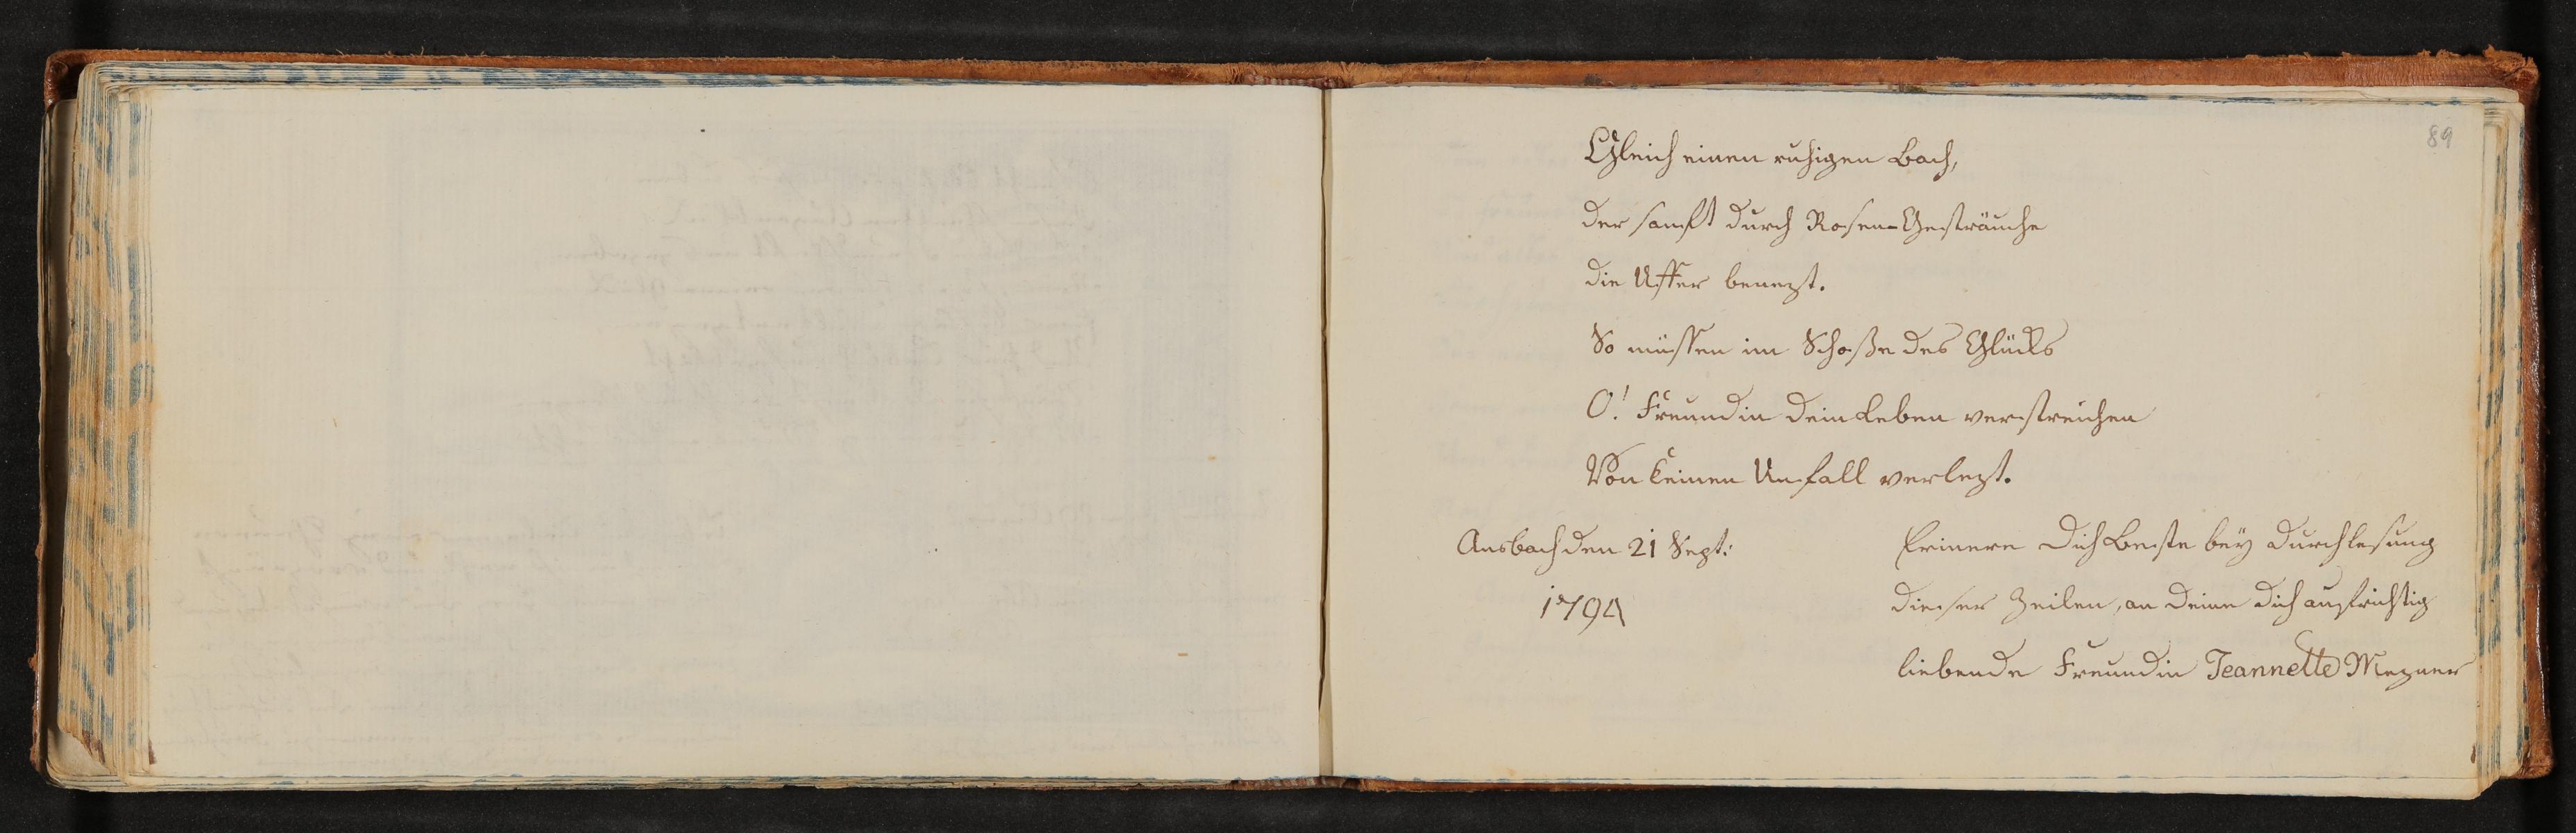 89
Gleich einen ruhigen Bach,
der sanft durch Rosen-Gesträuche
die Uffer benezt.
So müssen im Schoße des Glücks
O! Freundin dein Leben verstreichen
Von keinen Unfall verlezt.
Ansbach den 21 Sept:
1794
Erinere Dich Beste bey Durchlesung
dieser Zeilen, an Deine Dich aufrichtig
liebende Freundin Jeannette Mezner